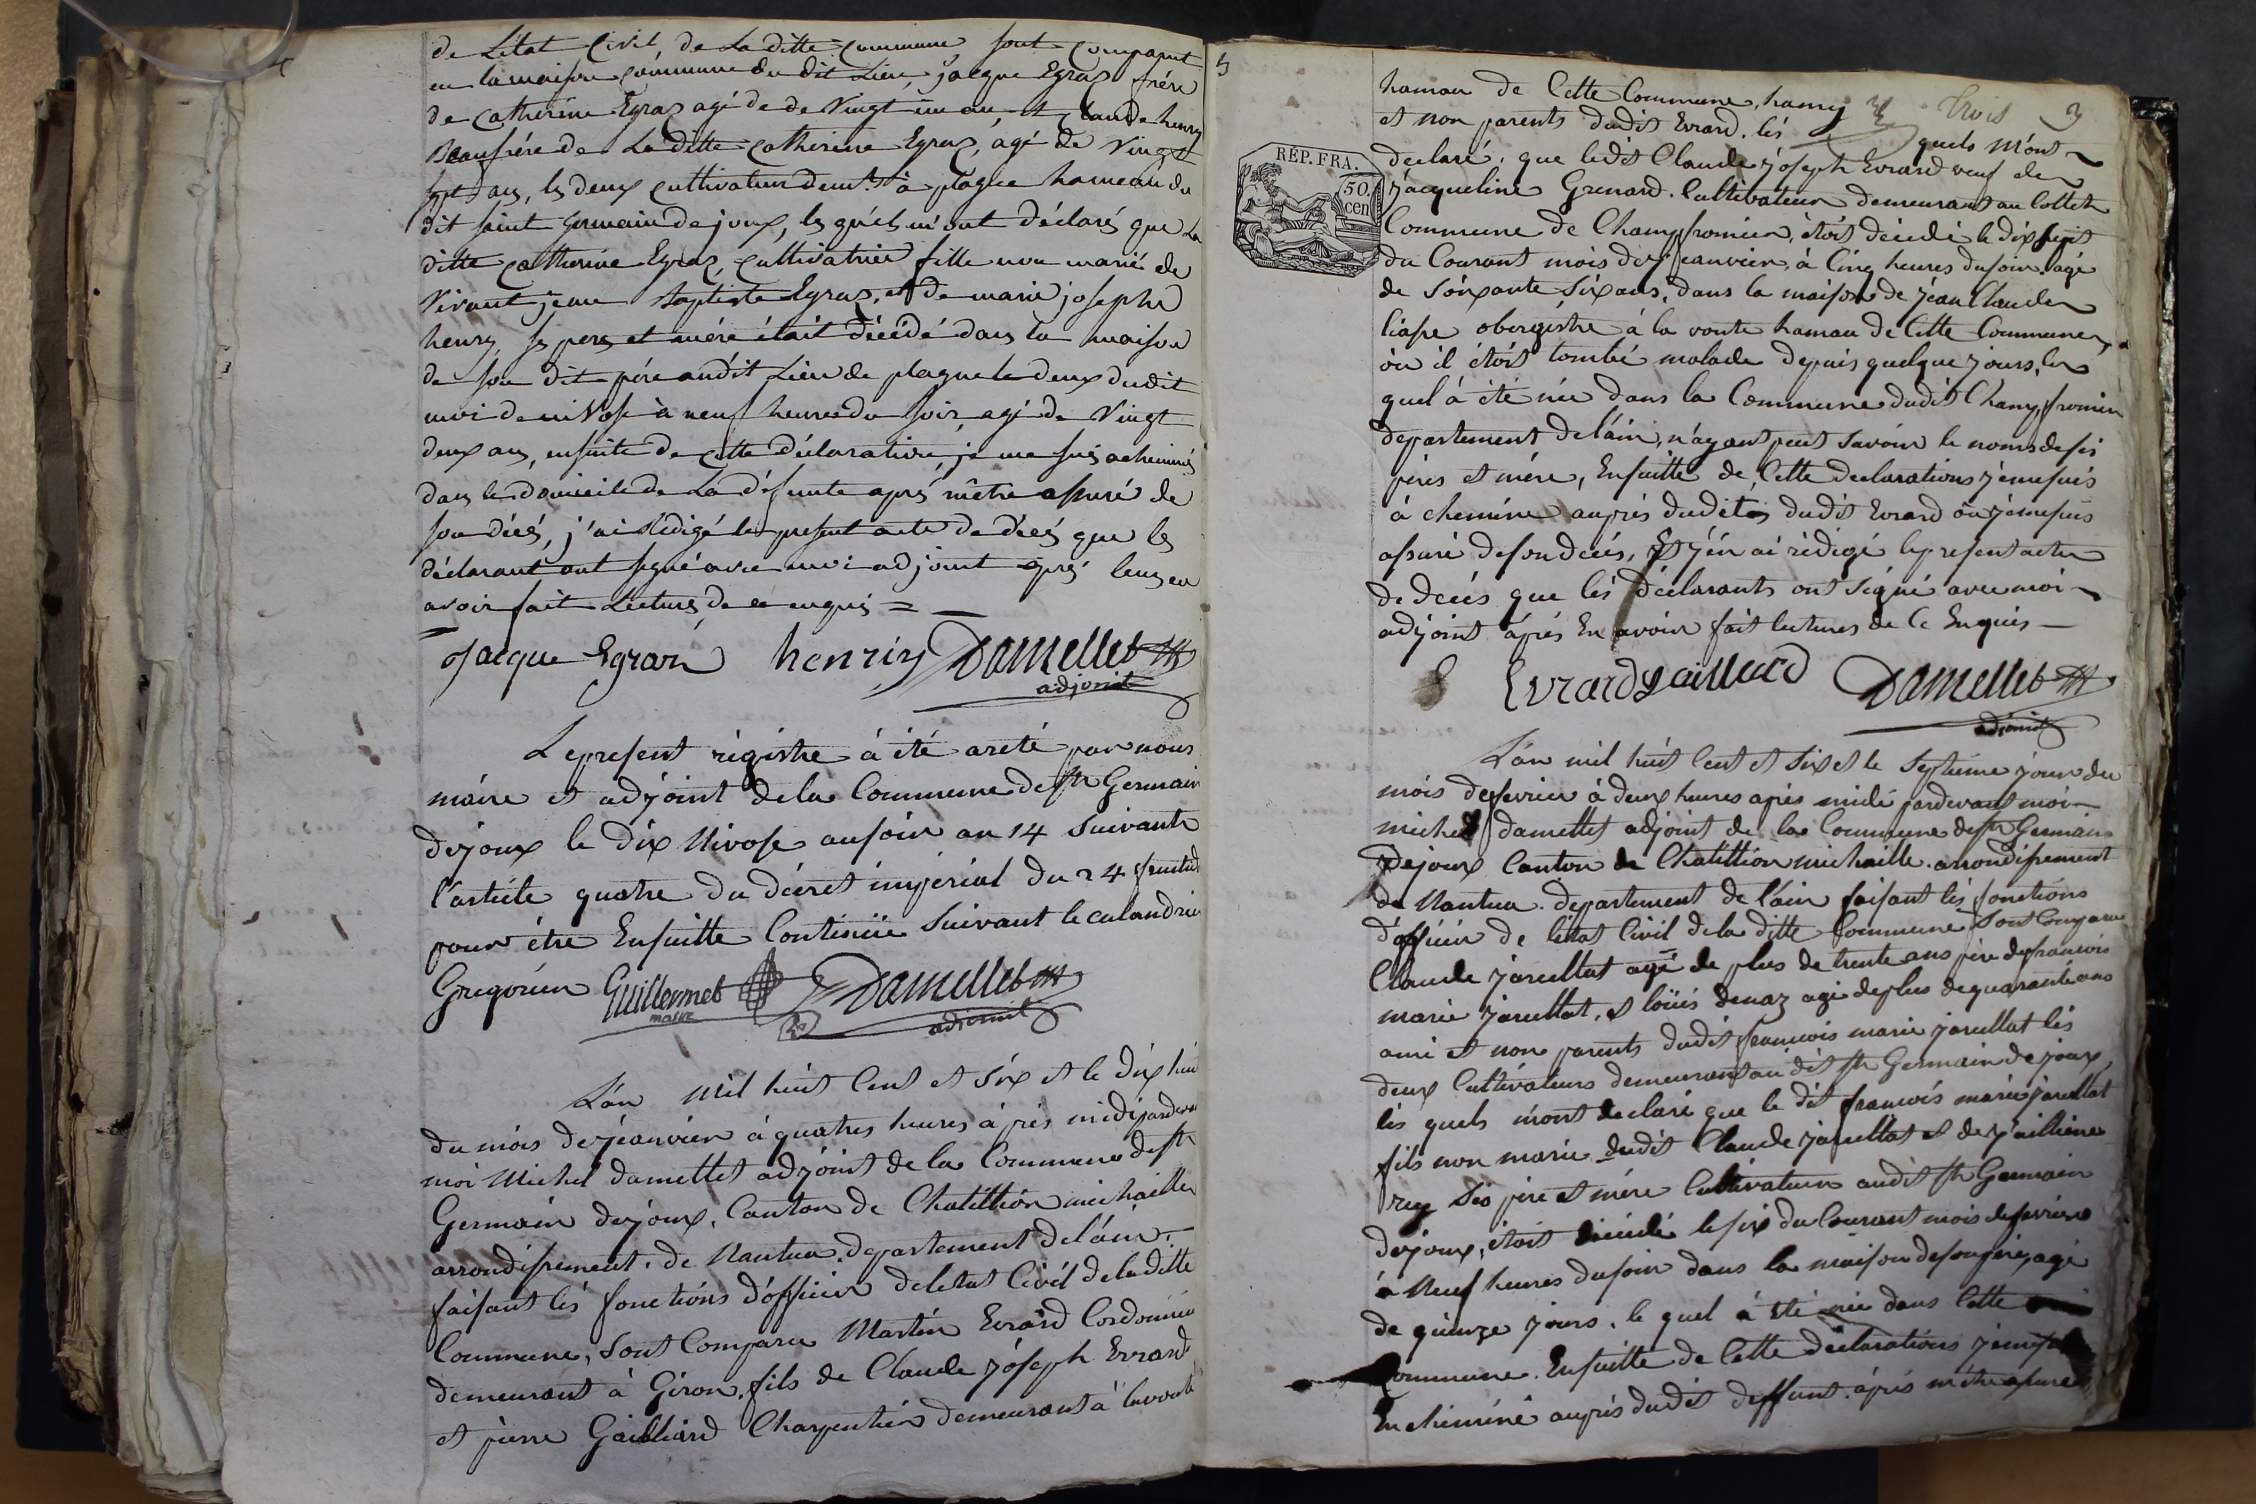 de L'état Civil, de La ditte commune sont comparut
en la maison commune du dit Lieu, jacque Egraz frére
de catherine Egraz agé de de Vingt un an, et claude henry
Beaufrére de La ditte catherine Egraz, agé de Vingt
sept ans, les deux cultivateur demt. à plagne hameau du
dit saint Germain de joux, les quels m'ont déclaré que La
ditte catherine Egraz, cultivatrice fille non marié de
Vivant jean Baptiste Egraz, et de marie josephe
henry, ses peres et mére était décédé dans la maison
de son dit pére audit Lieu de plagne le deux dudit
moi de nivose à neuf heures du soir, agé de Vingt
deux ans, ensuite de cette déclaration, je me suis acheminé
dans le domicile de La défunte aprés m'être assuré de
son décés, j'ai rédigé le present acte de décés que les
déclarant ont signé avec moi adjoint aprés leur en
avoir fait Lecture, de ce enquis =
jacque Egraz henriy Damellet
adjoint
Le present régistre à été areté par nous
máire et adjóint de la Commune de st Germain
dejoux le dix Nivose au soir an 14 Suivant
l'artícle quatre du décret impérial du 24 fructid
pour étre Ensuitte Continüé Suivant le calandrier
Gregorien Guillermet Damellet
maire adjoint
L'an mil huit Cent et Six et le dix huit
du mois de jéanvier à quatres heures áprés midi pardevant
moi Michel damellet adjóint de la Commune de st
Germain dejoux, Canton de Chatillion michaille
arrondissement de Nantua, departement de l'áin,
faisant lés fonctións d'officier de letat Civil de la ditte
Commune, Sont Comparu Martin Evrard Cordonnier
demeurant à Giron, fils de Claude Jóseph Evrard
et piérre Gailliard Charpentier demeurant à lavoute
5
trois 3
hamau de Cette Commune, hamy
et non parents dudit Evrard, lés quels m'ont
declaré, que ledit Claude jóseph Evrard veuf de
jacqueline Grenard Cultivateur demeurant au Collet
REP. FRA.
50.
cen
Commune de Champfromier, étoit décédé le dix sept
du Courant mois de jeanvier, à Cinq heures du soir agé
de Sóixante Six ans, dans la maison de jéan Claude
liasse obergistre à la voute hamau de Cette Commune,
où il étoit tombé malade depuis quelque jours, le
quel à été née dans la Commune dudit Champfromier
departement de l'áin, n'ayant peut savoir le noms de sés
péres et mére, Ensuitte de Cette declarations jémesuis
à cheminé auprés dudit dudit Evrard où jémesuis
assuré de son decés, Et j'én ai rédigé le present acte
de decés que lés déclarants ont signé avec moi
adjoint áprés En avoir fait lectures de Ce Enquis
Evrard gailliard Damellet
adjoint
L'an mil huit Cent et Six et le Septieme jour du
mois de fevrier à deux heures aprés midi pardevant moi
michel damellet adjoint de la Commune de st Germain
dejoux Canton de Chatillion michaille arrondissement
de Nantua departement de l'áin faisant lés fonctions
d'officier de létat Civil de la ditte Commune Sont Comparu
Claude jarullat agé de plus de trente ans pére de francois
marie jarullat, et loüis denaz agé de plus de quarante ans
ami et non parents dudit francois marie jarullat lés
deux Cultivateurs demeurant au dit st Germain de joux,
lés quels m'ont declaré que le dit francois marie jarullat
fils non marié dudit Claude jarullat et de
rey Sés pére et mére Cultivateur audit st Germain
dejoux, étoit décédé le six du Courant mois de fevrier
à Neuf heures du soir dans la maison de son pére, agé
de quinze jours, le quel à été née dans Cette
Commune. Ensuitte de Cette déclarations
En cheminé auprés dudit deffunt, áprés m'étre assuré